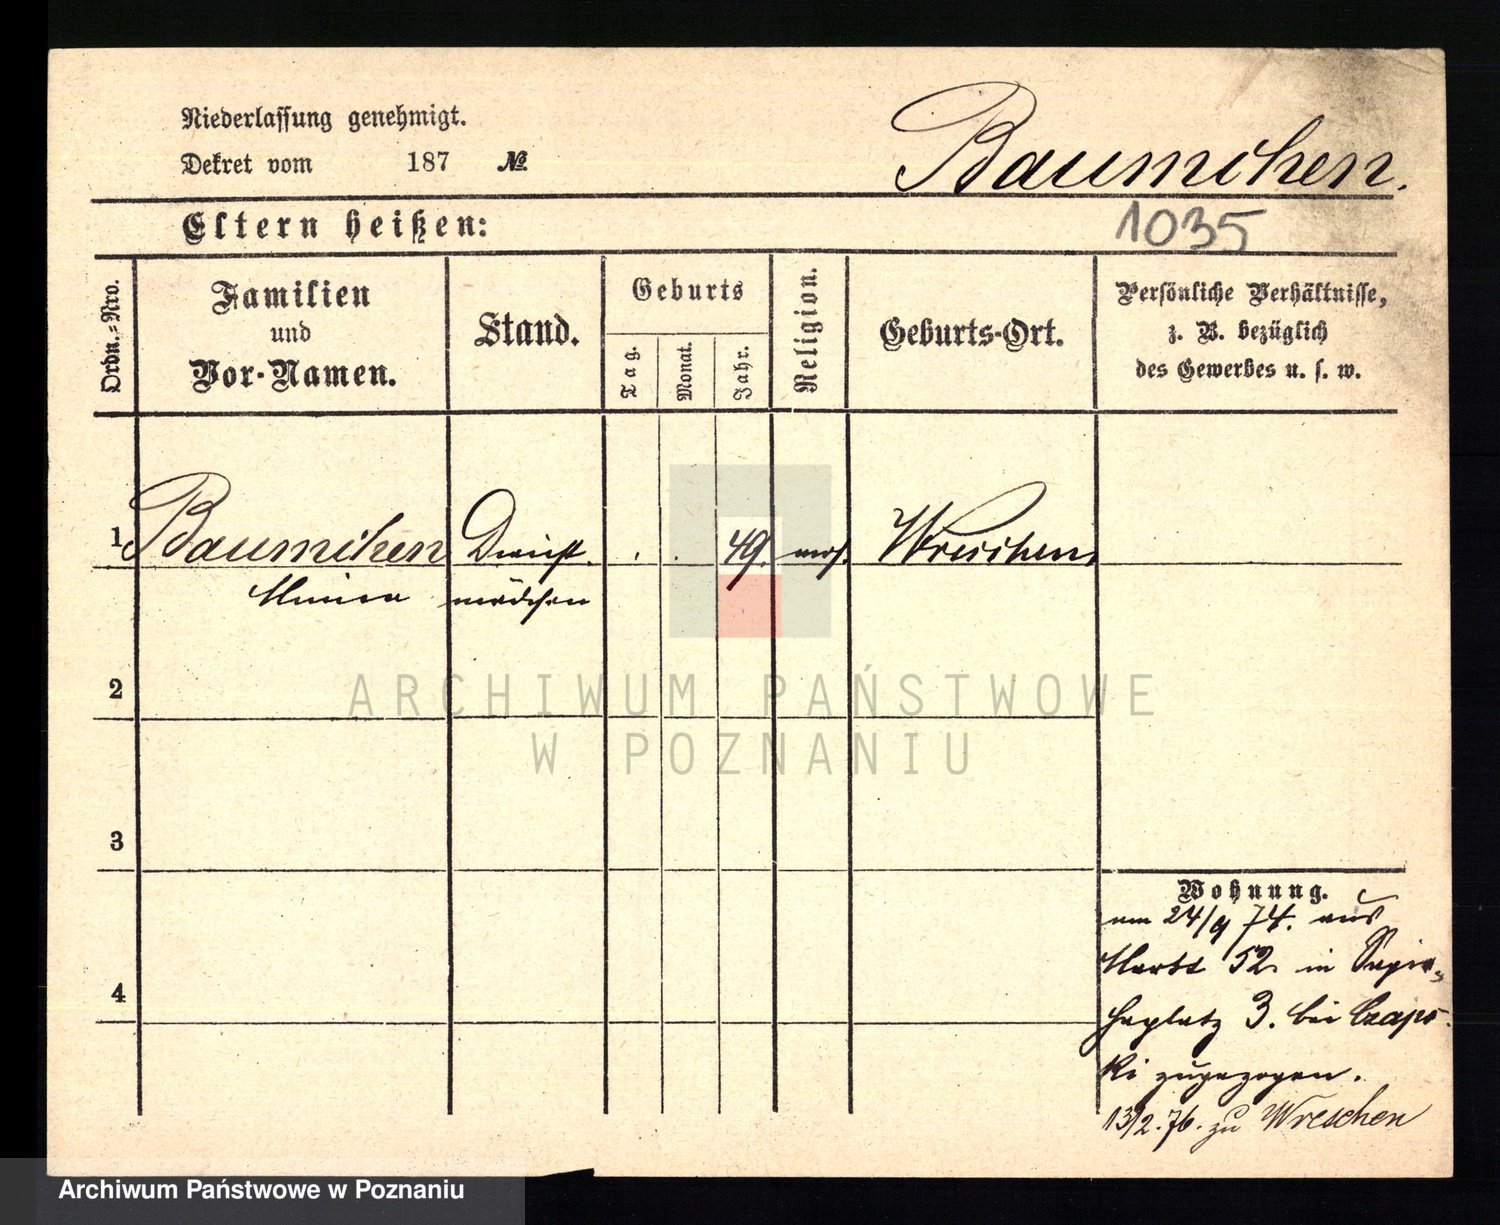 Niederlassung genehmigt.
Dekret vom 187 №
Baumchen.
1035
Eltern heißen:
Ordn.=Nro.
Familien
und
Vor-Namen.
Stand.
Geburts
Tag.
Monat.
Jahr.
Religion.
Geburts-Ort.
Persönliche Verhältnisse,
z. B. bezüglich
des Gewerbes u. s. w.
1 Baumchen Dienst 49. mos. Wreschen
Minna mädchen
2
3
4
Wohnung.
am 24/9 74. aus
Markt 52 in Sapie-
haplatz 3. bei Czaps-
ki zugezogen.
13/2. 76. zu Wreschen
ARCHIWUM PAŃSTWOWE
W POZNANIU
Archiwum Państwowe w Poznaniu